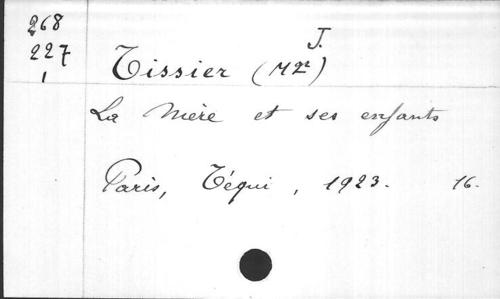 268
227
1
J.
Tissier (Mgr)
La Mère et ses enfants
Paris, Téqui, 1923. 16.